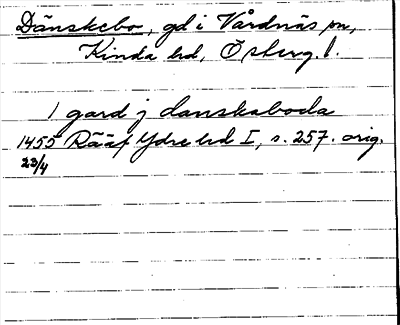 Dänskebo, gd i Vårdnäs sn,
Kinda hd, Ösberg. l.
1 gard j danskaboda
1455 Rääf Ydre hd I, s. 257. orig.
23/4